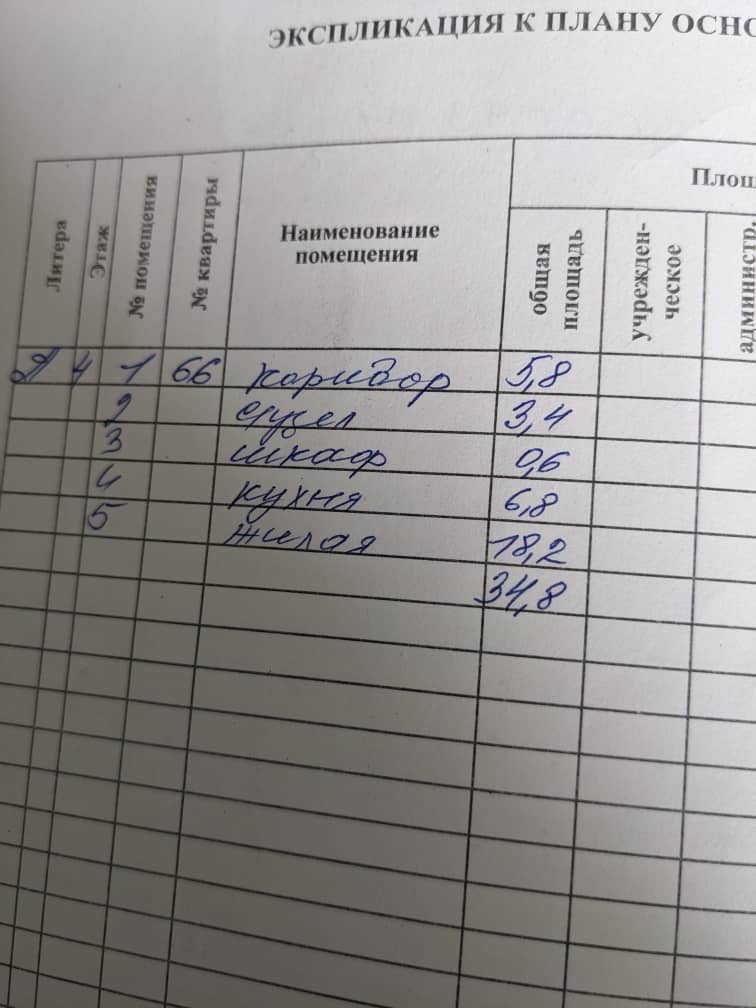 ЭКСПЛИКАЦИЯ К ПЛАНУ ОСНО
Литера Этаж № помещения № квартиры Наименование помещения Площ
общая площадь учрежден-ческое администр.
4 1 66 коридор 5,8
2 с/узел 3,4
3 шкаф 0,6
4 кухня 6,8
5 жилая 18,2
34,8